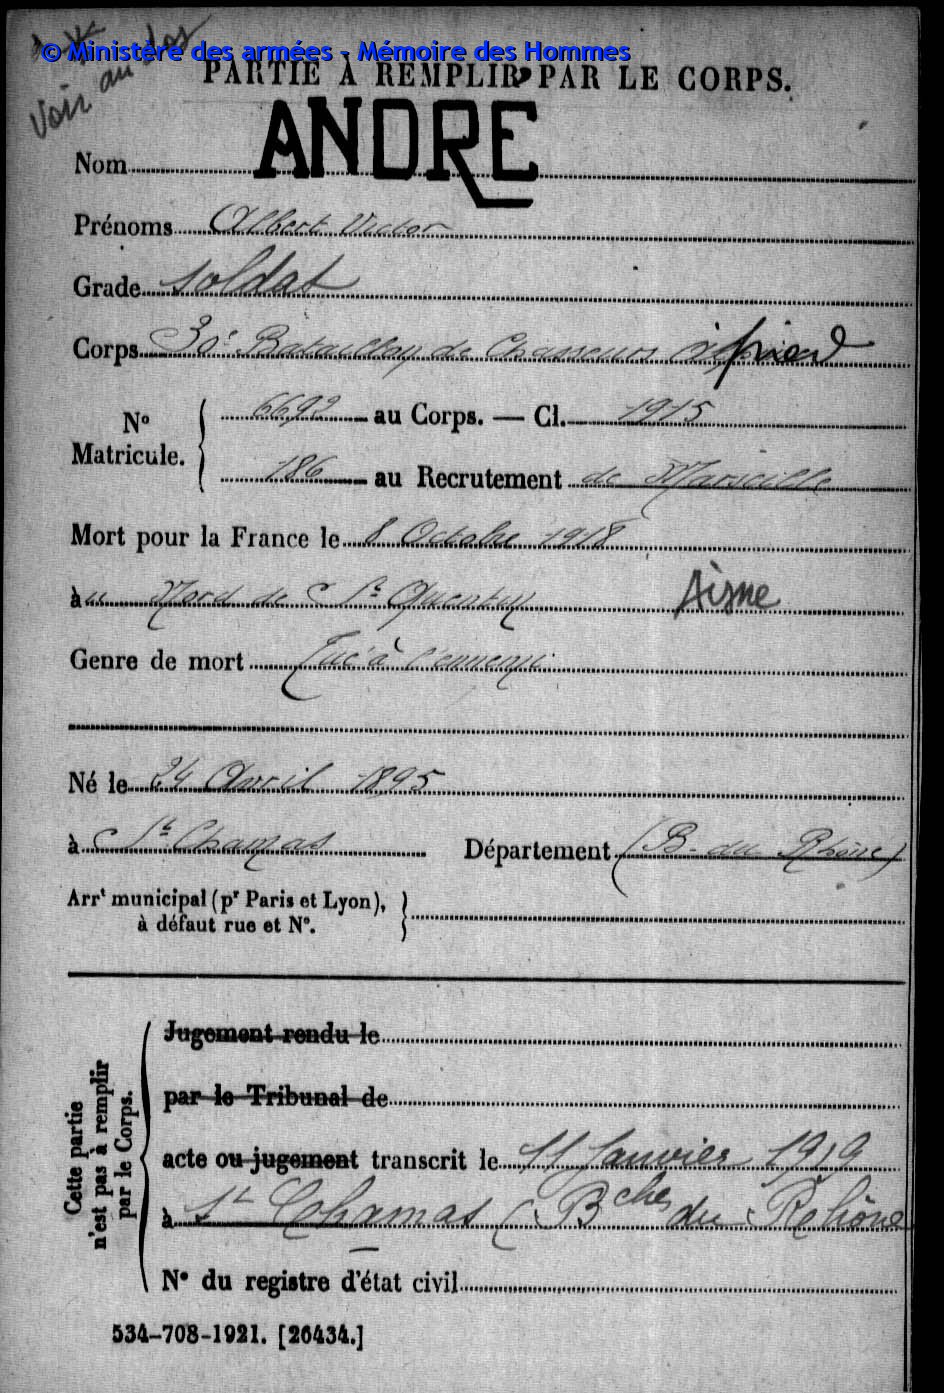 © Ministère des armées - Mémoire des Hommes
Voir au dos
PARTIE À REMPLIR PAR LE CORPS.
Nom ANDRE
Prénoms Albert Victor
Grade soldat
Corps 30e Bataillon de Chasseurs à pied
No Matricule. { 6692 au Corps. — Cl. 1915
186 au Recrutement de Marseille
Mort pour la France le 8 Octobre 1918
à u Nord de St Quentin Aisne
Genre de mort Tué à l'ennemi
Né le 24 Avril 1895
à St Chamas Département (B. du Rhône)
Arrt municipal (pr Paris et Lyon), }
à défaut rue et No.
Cette partie
n'est pas à remplir
par le Corps.
Jugement rendu le
par le Tribunal de
acte ou jugement transcrit le 11 Janvier 1919
à St Chamas (Bches du Rhône
No du registre d'état civil
534-708-1921. [26434.]